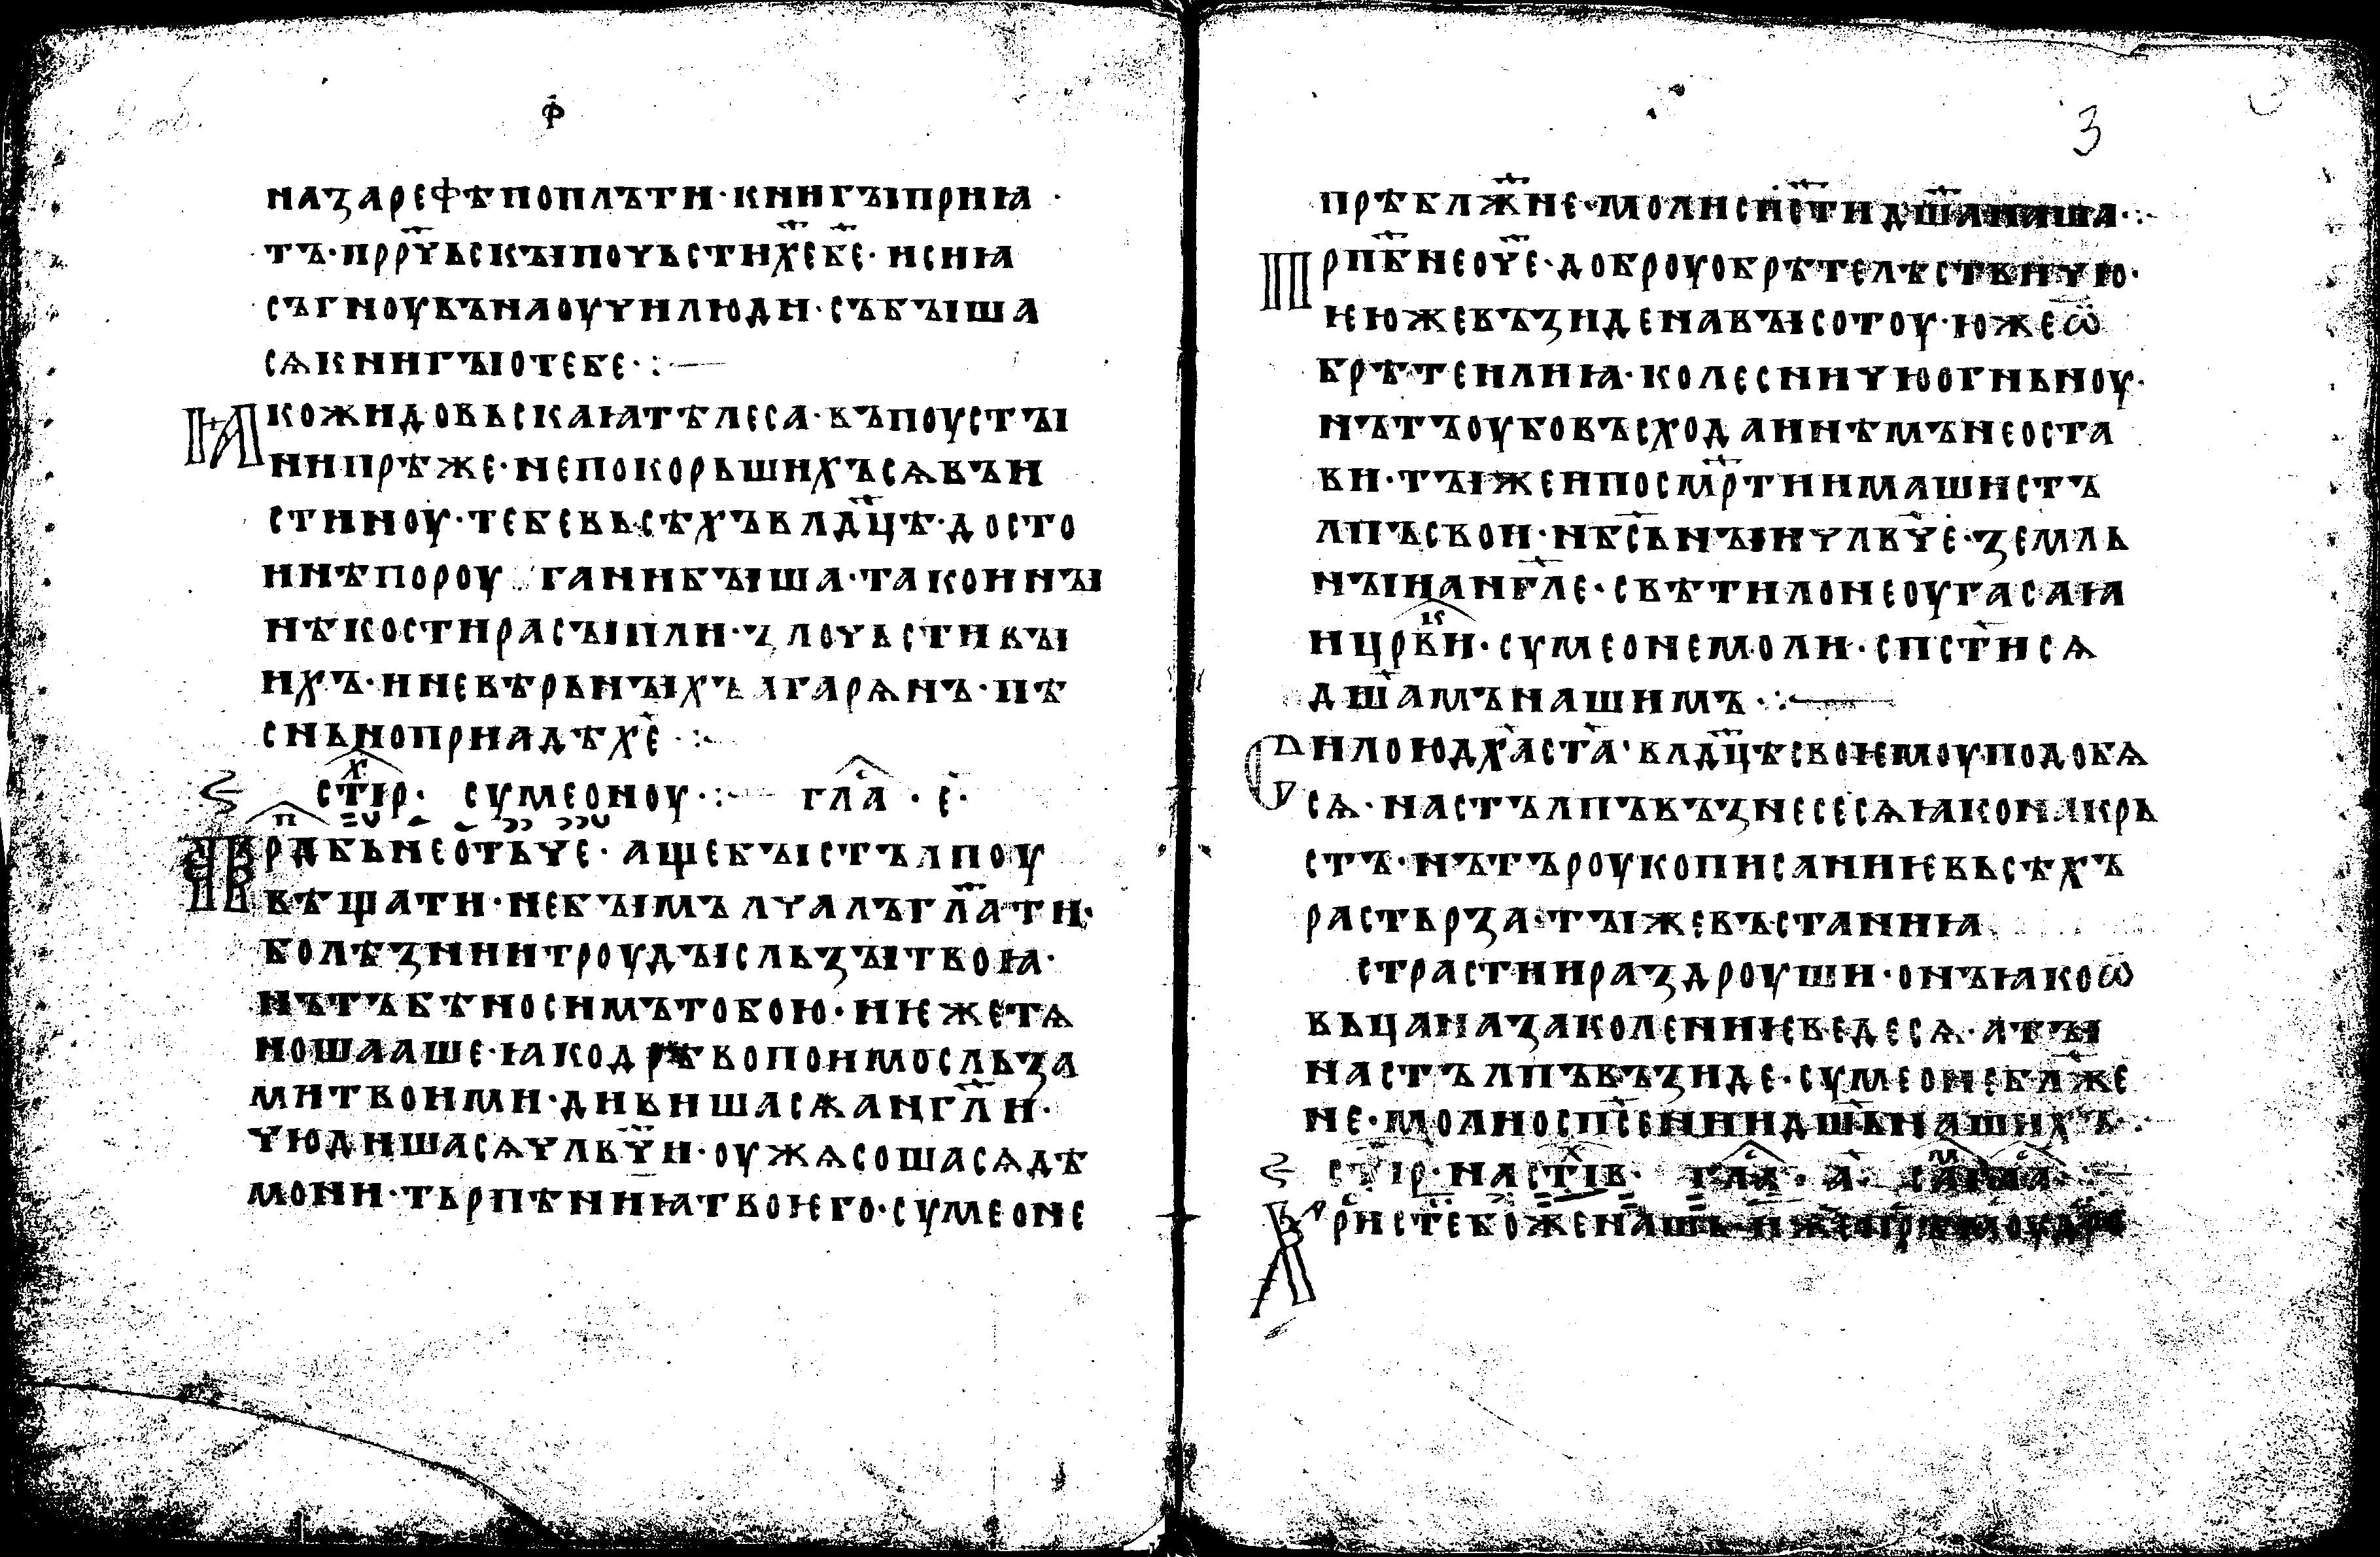 2 об.
ф
назарефѣпоплъти·книгъıприꙗ·
тъ·прр҃чьскъıпочьстих҃еб҃е·исниꙗ
съгноувънаоучилюди·събъıша
сѧкнигъıотебе·:—
Ꙗкожидовьскаꙗтѣлеса·въпоустъı
нипрѣже·непокорьшихъсѧвън
стиноу·тебевьсѣхъвлад҃цѣ·досто
инѣпороу ганибъıша·такоинъı
нѣкостирасъıпли·ꙁлочьствъı
ихъ·иневѣрьнъıхъагарѧнъ·пѣ
сньноприадѣхе҃·:·
ст҃хір·сумеоноу·:·— гла҃с·е҃·
Прпд҃бьнеотьче·ащебъıстълпоу
вѣщати·небъıмълчалъгл҃ати·
болѣꙁниитроудъıсльꙁъıтвоꙗ·
нътъбѣносимътобою·иѥжетѧ
ношааше·ꙗкодрѣвопоимосльꙁа
митвоими·дивишасѧанг҃ли·
чюдишасѧчлвч҃и·оужѧсошасѧдѣ
мони·тьрпѣниꙗтвоѥго·сумеоне
3
прѣблж҃не·молисп҃стидш҃анаша·:·
Прпб҃неоч҃е·доброуобрѣтелѣствьную·
ѥюжевъꙁиденавъıсотоу·южеѿ
брѣтенлиꙗ·колесничюогньноу·
нътъоубовъсходанинѣмънеоста
ви·тъıжеипосмр҃тиимашистъ
лпъсвои·нбс҃ьнъıичлвч҃е·ꙁемль
нъıианг҃ле·свѣтилонеоугасаꙗ
ицрк҃ви·сумеонемоли·спст҃исѧ
дш҃амънашимъ·:·—
Силоюдх҃аста҃·влад҃цѣсвоѥмоуподобѧ
сѧ·настълпъвъꙁнесесѧꙗконакрь
стъ·нътъроукописаниѥвьсѣхъ
растьрꙁа·тъıжевъстаниꙗ
страстиираꙁдроуши·онъꙗкоѿ
вьцанаꙁаколениѥведесѧ·атъı
настълпъвъꙁиде·сумеонебл҃же
не·молиоспс҃ениидш҃ьнашихъ·:·
ст҃ір·наст҃хів· гла҃с·а҃·
Христебоженашь·иже